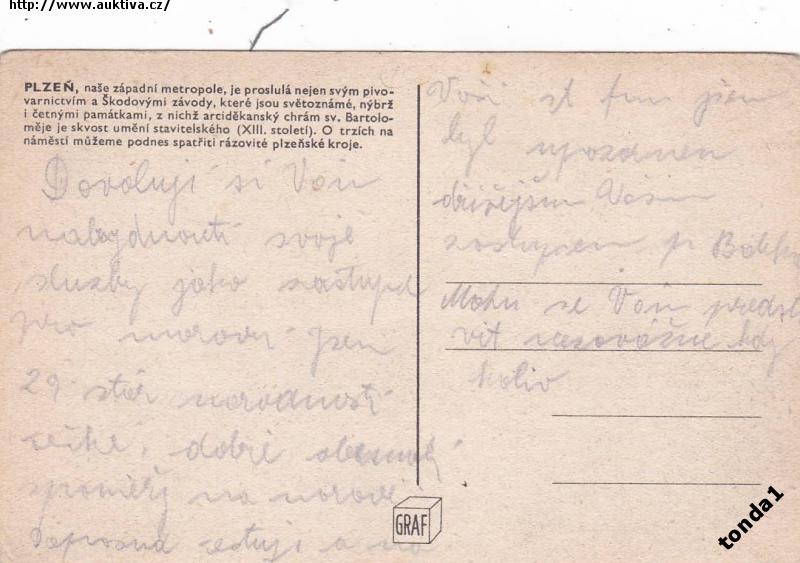 http://www.auktiva.cz/
PLZEŇ, naše západní metropole, je proslulá nejen svým pivo-
varnictvím a Škodovými závody, které jsou světoznámé, nýbrž
i četnými památkami, z nichž arciděkanský chrám sv. Bartolo-
měje je skvost umění stavitelského (XIII. století). O trzích na
náměstí můžeme podnes spatřiti rázovité plzeňské kroje.
Dovoluji si Vám
nabydnouti svojé
služby jako zástupce
pro moravu jsem
29 stár národnosti
české, dobré
poměry na moravě
a na
jsem
byl upozorněn
dřívějším Vašim
zástupcem p.
Mohu se Vám předsta
vit kdy
koliv
GRAF
tonda1